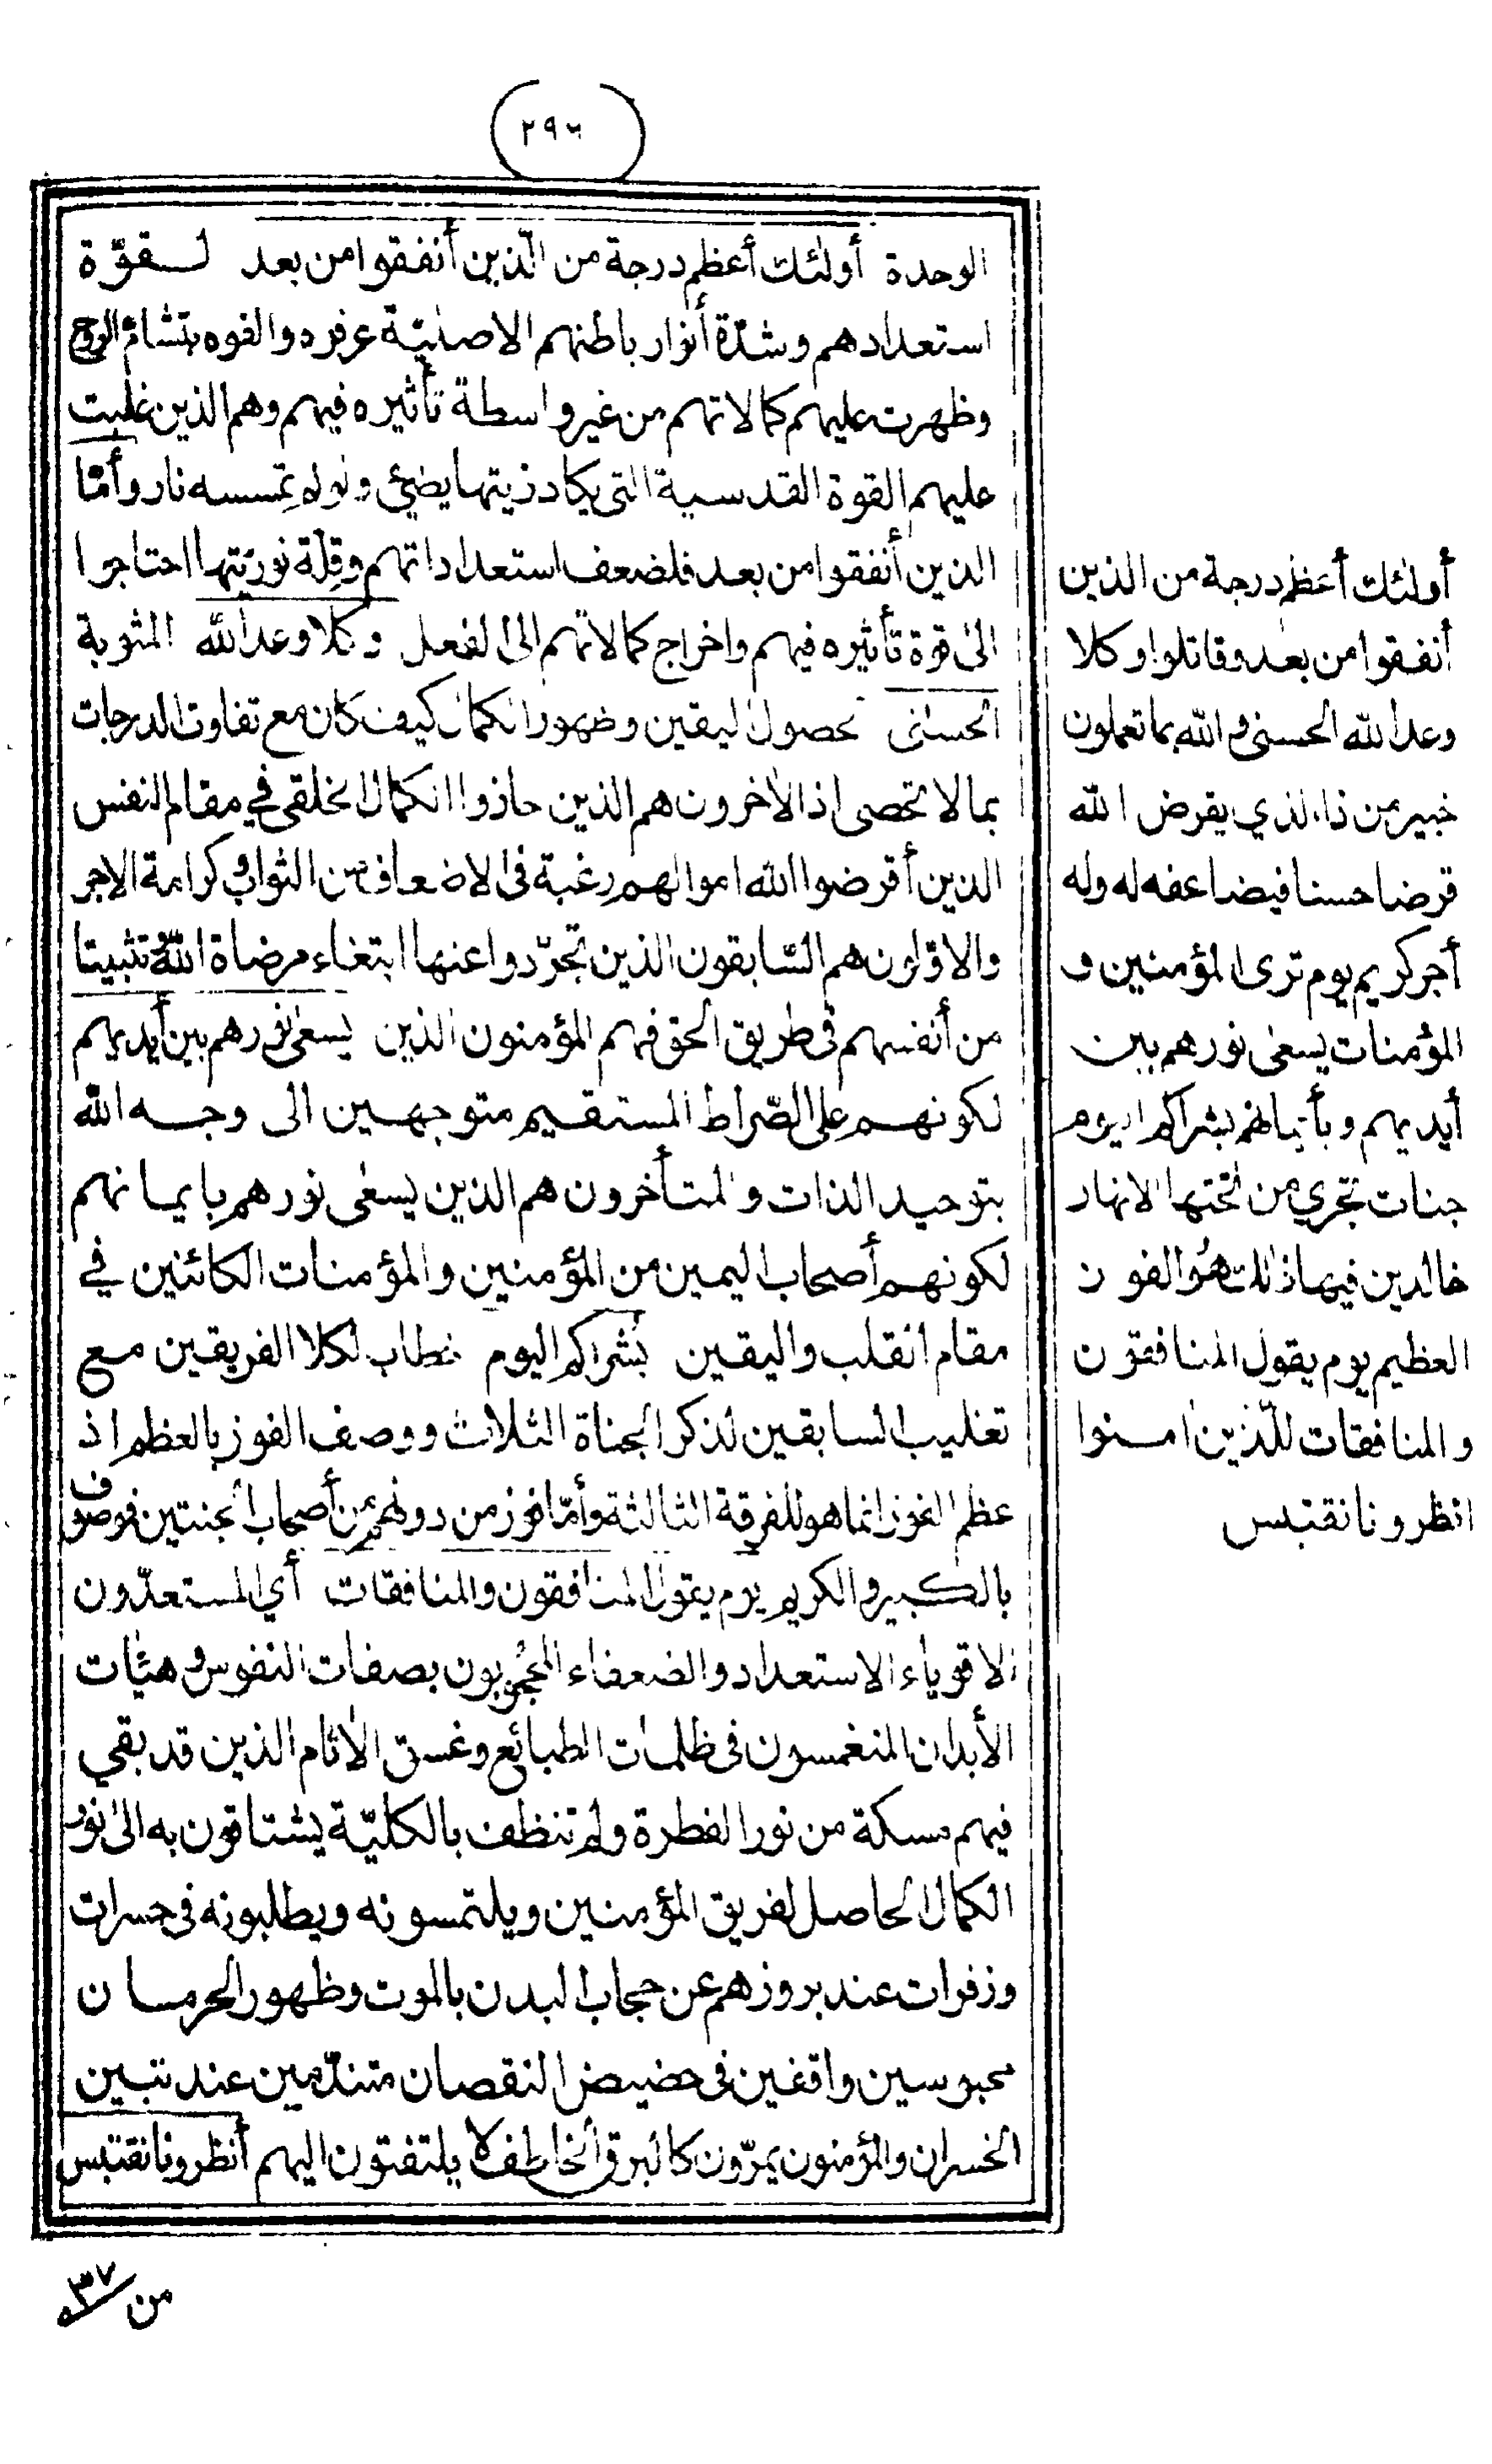 (٢٩٦)
الوحدة أولئك أعظم درجة من الّذين أنفقوا من بعد لقوّة
استعدادهم وشدّة أنوار باطنهم الاصليّة عرفوه والفوه بتشامّ الروح
وظهرت عليهم كمالاتهم من غير واسطة تأثيره فيهم وهم الذين غلبت
عليهم القوة القدسية التى يكاد زيتها يضئ ولو لم تمسسه نار وأمّا
الذين أنفقوا من بعد فلضعف استعداداتهم وقلة نوريّتها احتاجوا
الى قوة تأثيره فيهم واخراج كمالاتهم الى الفعل وكلا وعد الله المثوبة
الحسنى بحصول اليقين وظهور الكمال كيف كان مع تفاوت الدرجات
بما لا تحصى اذ الآخرون هم الذين حازوا الكمال الخلقى في مقام النفس
الذين أقرضوا الله اموالهم رغبة فى الاضعاف من الثواب وكرامة الاجر
والاوّلون هم السّابقون الذين تجرّدوا عنها ابتغاء مرضاة الله وتثبيتا
من أنفسهم فى طريق الحق فهم المؤمنون الذين يسعى نورهم بين أيديهم
لكونهم على الصّراط المستقيم متوجهين الى وجه الله
بتوحيد الذات والمتأخرون هم الذين يسعى نورهم بايمانهم
لكونهم أصحاب اليمين من المؤمنين والمؤمنات الكائنين في
مقام القلب واليقين بشراكم اليوم خطاب لكلا الفريقين مع
تغليب السابقين لذكر الجناة الثلاث ووصف الفوز بالعظم اذ
عظم الفوز انما هو للفرقة الثالثة وأمّا فوز من دونهم من أصحاب الجنتين فوصوف
بالكبير والكريم يوم يقول المنافقون والمنافقات أي المستعدّون
الاقوياء الاستعداد والضعفاء المحجوبون بصفات النفوس وهيّات
الأبدان المنغمسون فى ظلمات الطبائع وغسق الآثام الذين قد بقي
فيهم مسكة من نور الفطرة ولم تنظف بالكليّة يشتاقون به الى نور
الكمال الحاصل لفريق المؤمنين ويلتمسونه ويطلبونه فى حسرات
وزفرات عند بروزهم عن حجاب البدن بالموت وظهور الحرمان
محبوسين واقفين فى حضيض النقصان متندّمين عند تبين
الخسران والمؤمنون يمرّون كالبرق الخاطف لا يلتفتون اليهم أنظرونا نقتبس
أولئك أعظم درجة من الذين
أنفقوا من بعد وقاتلوا وكلا
وعد الله الحسنى والله بما تعملون
خبير من ذا الذي يقرض الله
قرضا حسنا فيضاعفه له وله
أجر كريم يوم ترى المؤمنين و
المؤمنات يسعى نورهم بين
أيديهم وبأيمانهم بشراكم اليوم
جنات تجري من تحتها الانهار
خالدين فيها ذلك هو الفوز
العظيم يوم يقول المنافقون
والمنافقات للّذين امنوا
انظرونا نقتبس
من
٣٧